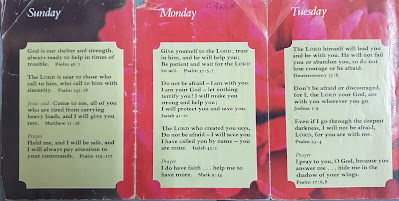 Sunday
God is our shelter and strength,
always ready to help in times of
trouble. Psalm 46:1
The LORD is near to those who
call to him, who call to him with
sincerity. Psalm 145:18
Jesus said: Come to me, all of you
who are tired from carrying
heavy loads, and I will give you
rest. Matthew 11:28
Prayer
Hold me, and I will be safe, and
I will always pay attention to
your commands. Psalm 119:117
Monday
Give yourself to the LORD; trust
in him, and he will help you;
Be patient and wait for the LORD
to act. Psalm 37:5,7
Do not be afraid – I am with you.
I am your God – let nothing
terrify you! I will make you
strong and help you;
I will protect you and save you.
Isaiah 41:10
The LORD who created you says,
Do not be afraid – I will save you.
I have called you by name – you
are mine. Isaiah 43:1
Prayer
I do have faith . . . help me to
have more. Mark 9:24
Tuesday
The LORD himself will lead you
and be with you. He will not fail
you or abandon you, so do not
lose courage or be afraid.
Deuteronomy 31:8
Don't be afraid or discouraged,
for I, the LORD your God, am
with you wherever you go.
Joshua 1:9
Even if I go through the deepest
darkness, I will not be afraid,
LORD, for you are with me.
Psalm 23:4
Prayer
I pray to you, O God, because you
answer me . . . hide me in the
shadow of your wings.
Psalm 17:6,8